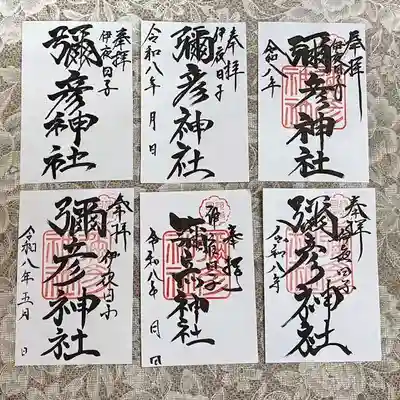 奉拝
伊夜日子
彌彦神社
奉拝
伊夜日子
彌彦神社
令和八年 月 日
奉拝
伊夜日子
彌彦神社
令和八年
奉拝
伊夜日子
彌彦神社
令和八年五月 日
奉拝
伊夜日子
彌彦神社
令和八年 月 日
奉拝
伊夜日子
彌彦神社
令和八年